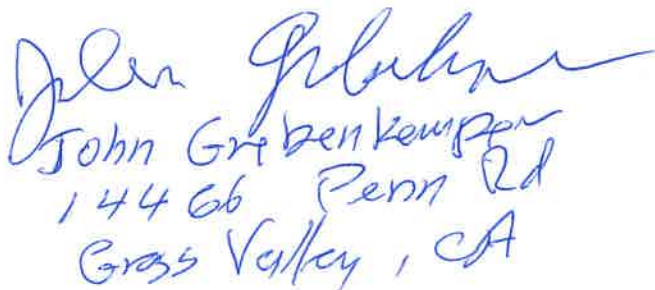 John Grebenkemper
John Grebenkemper
14466 Penn Rd
Grass Valley, CA